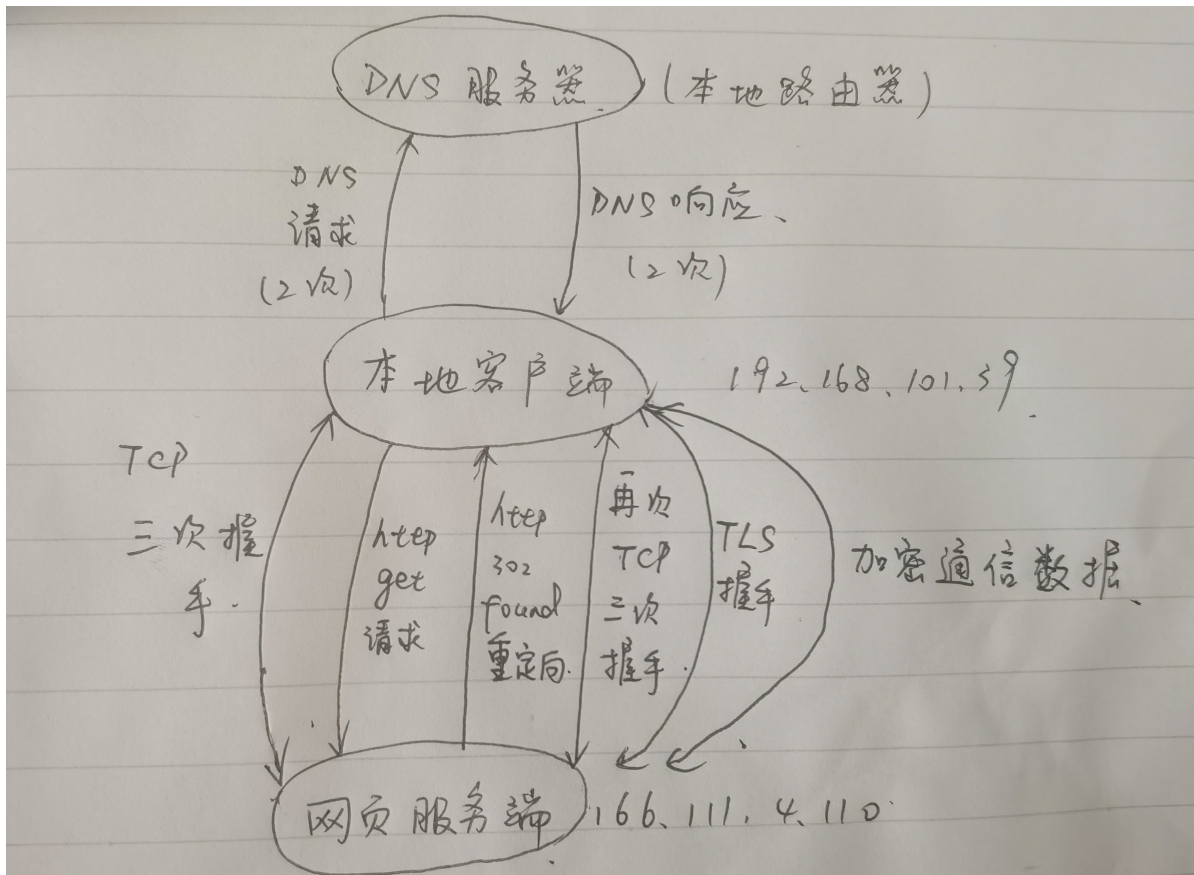 DNS 服务器 (本地路由器)
DNS
请求
(2次)
DNS 响应、
(2次)
本地客户端
192.168.101.39
TCP
三次握
手.
http
get
请求
http
302
found
重定向.
再次
TCP
三次
握手.
TLS
握手
加密通信数据、
网页服务端
166.111.4.110